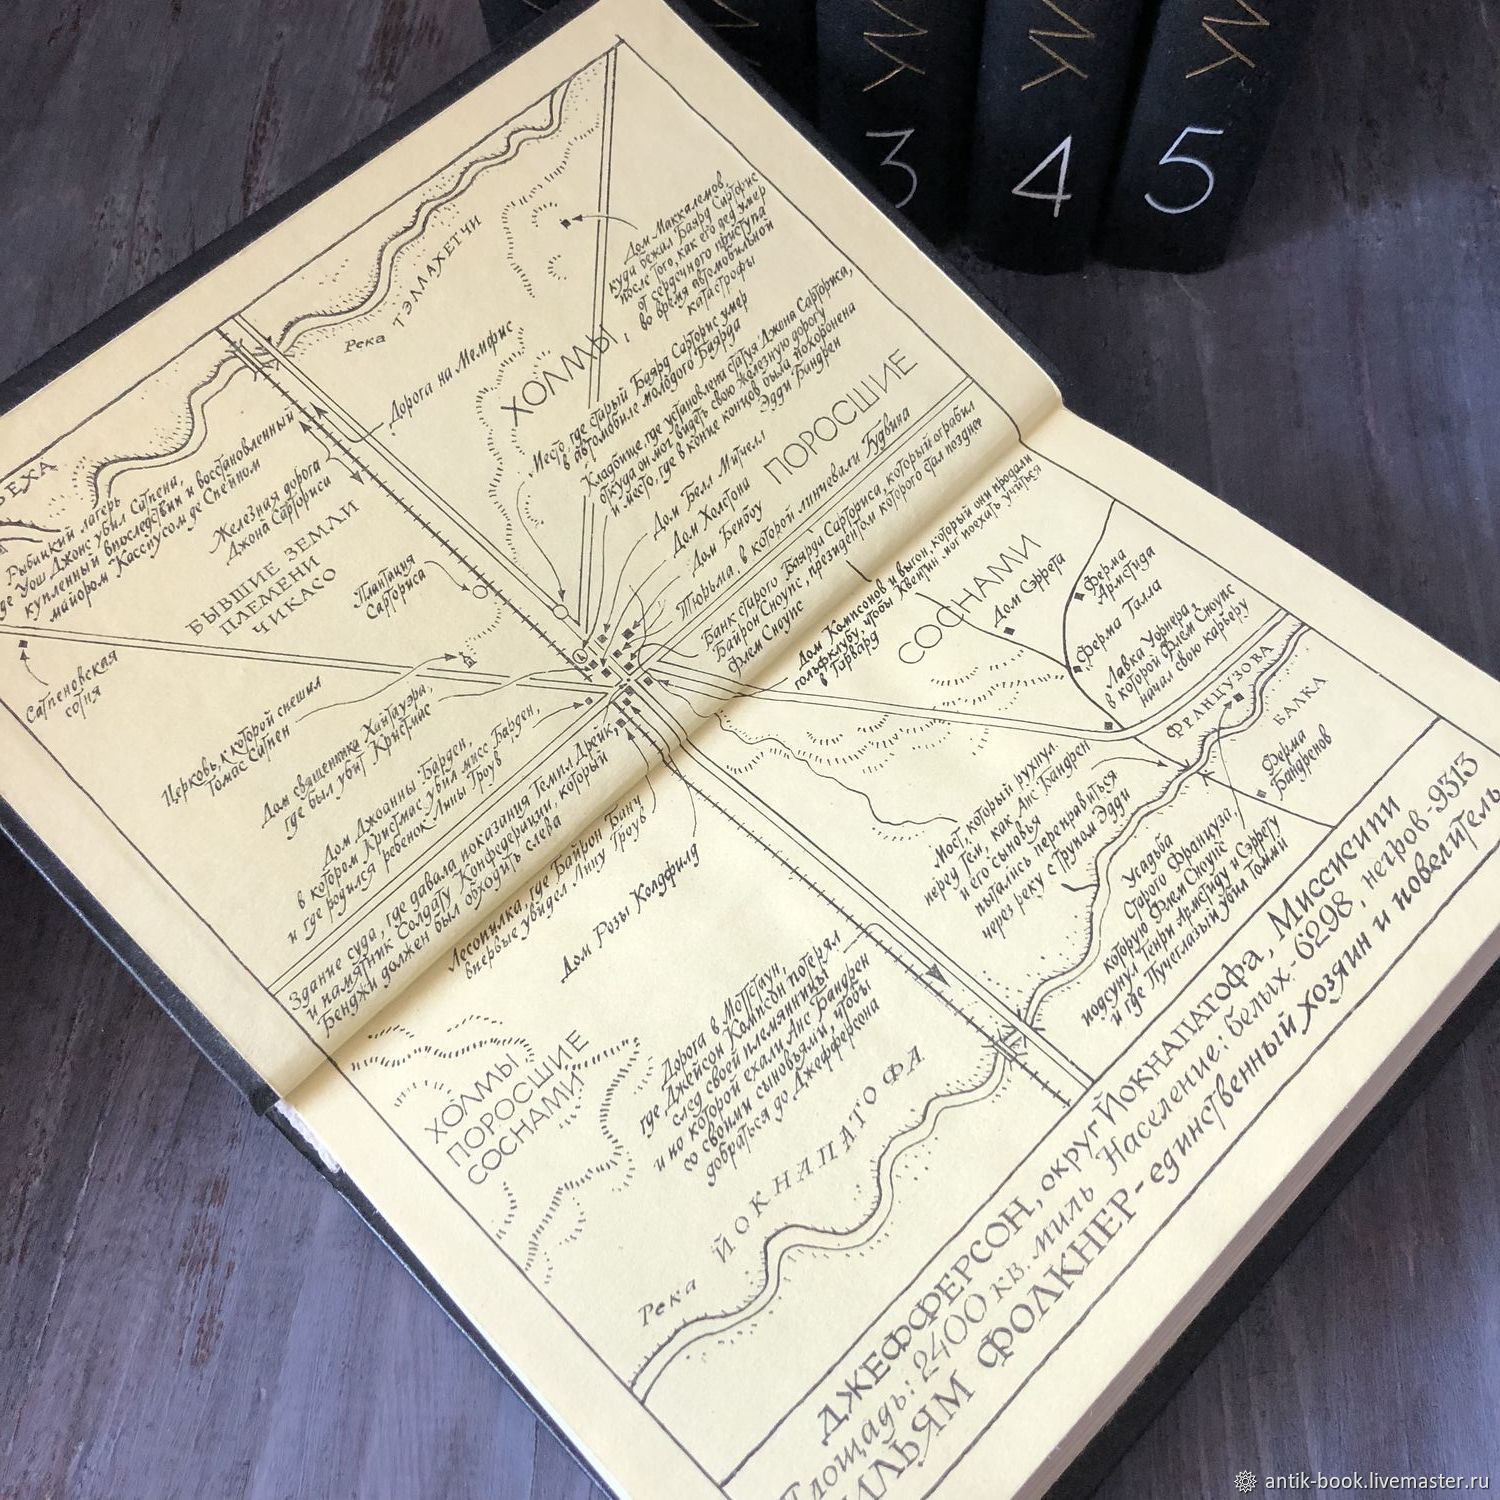 3
4
5
Река
ТЭЛЛАХЕТЧИ
Дом Маккалемов
куда бежал Баярд Сарторис
после того, как его дед умер
от сердечного приступа
во время автомобильной
катастрофы
Дорога на Мемфис
ХОЛМЫ,
Место, где старый Баярд Сарторис умер
в автомобиле молодого Баярда
Кладбище, где установлена статуя Джона Сарториса,
откуда он мог видеть свою железную дорогу
и место, где в конце концов была похоронена
Эдди Бандрен
Дом Белл Митчелл
ПОРОСШИЕ
Дом Холстона
Дом Бенбоу
Тюрьма, в которой линчевали Гудвина
Банк старого Баярда Сарториса, который ограбил
Байрон Сноупс, президентом которого стал позднее
Флем Сноупс
Рыбацкий лагерь
где Уош Джонс убил Сатпена,
купленный впоследствии и восстановленный
майором Касспусом де Спейном
Железная дорога
Джона Сарториса
БЫВШИЕ ЗЕМЛИ
ПЛЕМЕНИ
ЧИКАСО
Плантация
Сарториса
Сатпеновская
сотня
Церковь, к которой спешил
Томас Сатпен
Дом священника Хайтауэра,
где был убит Кристмас
Дом Джоанны Барден,
в котором Кристмас убил мисс Барден,
и где родился ребенок Лины Гроув
Здание суда, где давала показания Темпл Дрейк,
и памятник Солдату Конфедерации, который
Бенджи должен был обходить слева
Лесопилка, где Байрон Банч
впервые увидел Лину Гроув
Дом Розы Колдфилд
Дом Компсонов и выгон, который они продали
гольфклубу, чтобы Квентин мог поехать учиться
в Гарвард
СОСНАМИ
Дом Сэррета
Ферма
Армстида
Ферма Талла
Лавка Уорнера,
в которой Флем Сноупс
начал свою карьеру
ФРАНЦУЗОВА
БАЛКА
Ферма
Бандренов
Мост, который рухнул
перед тем, как Анс Бандрен
и его сыновья
пытались переправиться
через реку с трупом Эдди
Усадьба
Старого Француза,
которую Флем Сноупс
подсунул Генри Армстиду и Сэррету
и где Пучеглазый убил Томми
ХОЛМЫ
ПОРОСШИЕ
СОСНАМИ
Дорога в Моттстаун,
где Джейсон Компсон потерял
след своей племянницы
и по которой ехали Анс Бандрен
со своими сыновьями, чтобы
добраться до Джефферсона
Река
ЙОКНАПАТОФА
ДЖЕФФЕРСОН, округ Йокнапатофа, Миссисипи
Площадь: 2400 кв. миль Население: белых - 6298, негров - 9313
УИЛЬЯМ ФОЛКНЕР - единственный хозяин и повелитель
antik-book.livemaster.ru